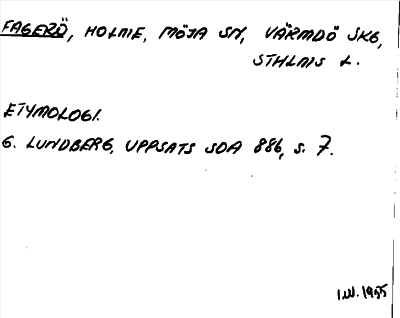 FAGERÖ, HOLME, MÖJA SN, VÄRMDÖ SKG,
STHLMS L.
ETYMOLOGI.
G. LUNDBERG, UPPSATS SOA 886, S. 7.
I.W. 1955